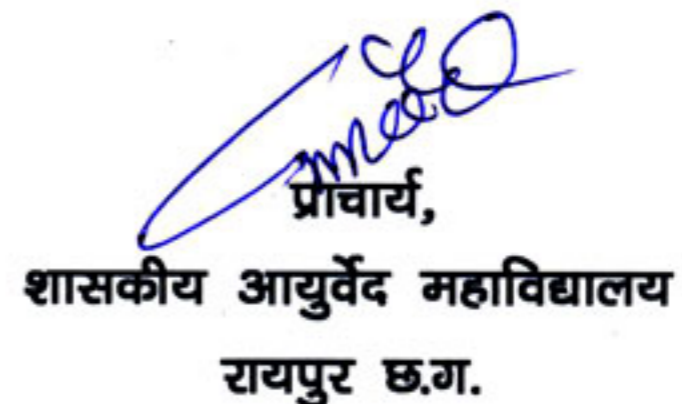 प्राचार्य,
शासकीय आयुर्वेद महाविद्यालय
रायपुर छ.ग.